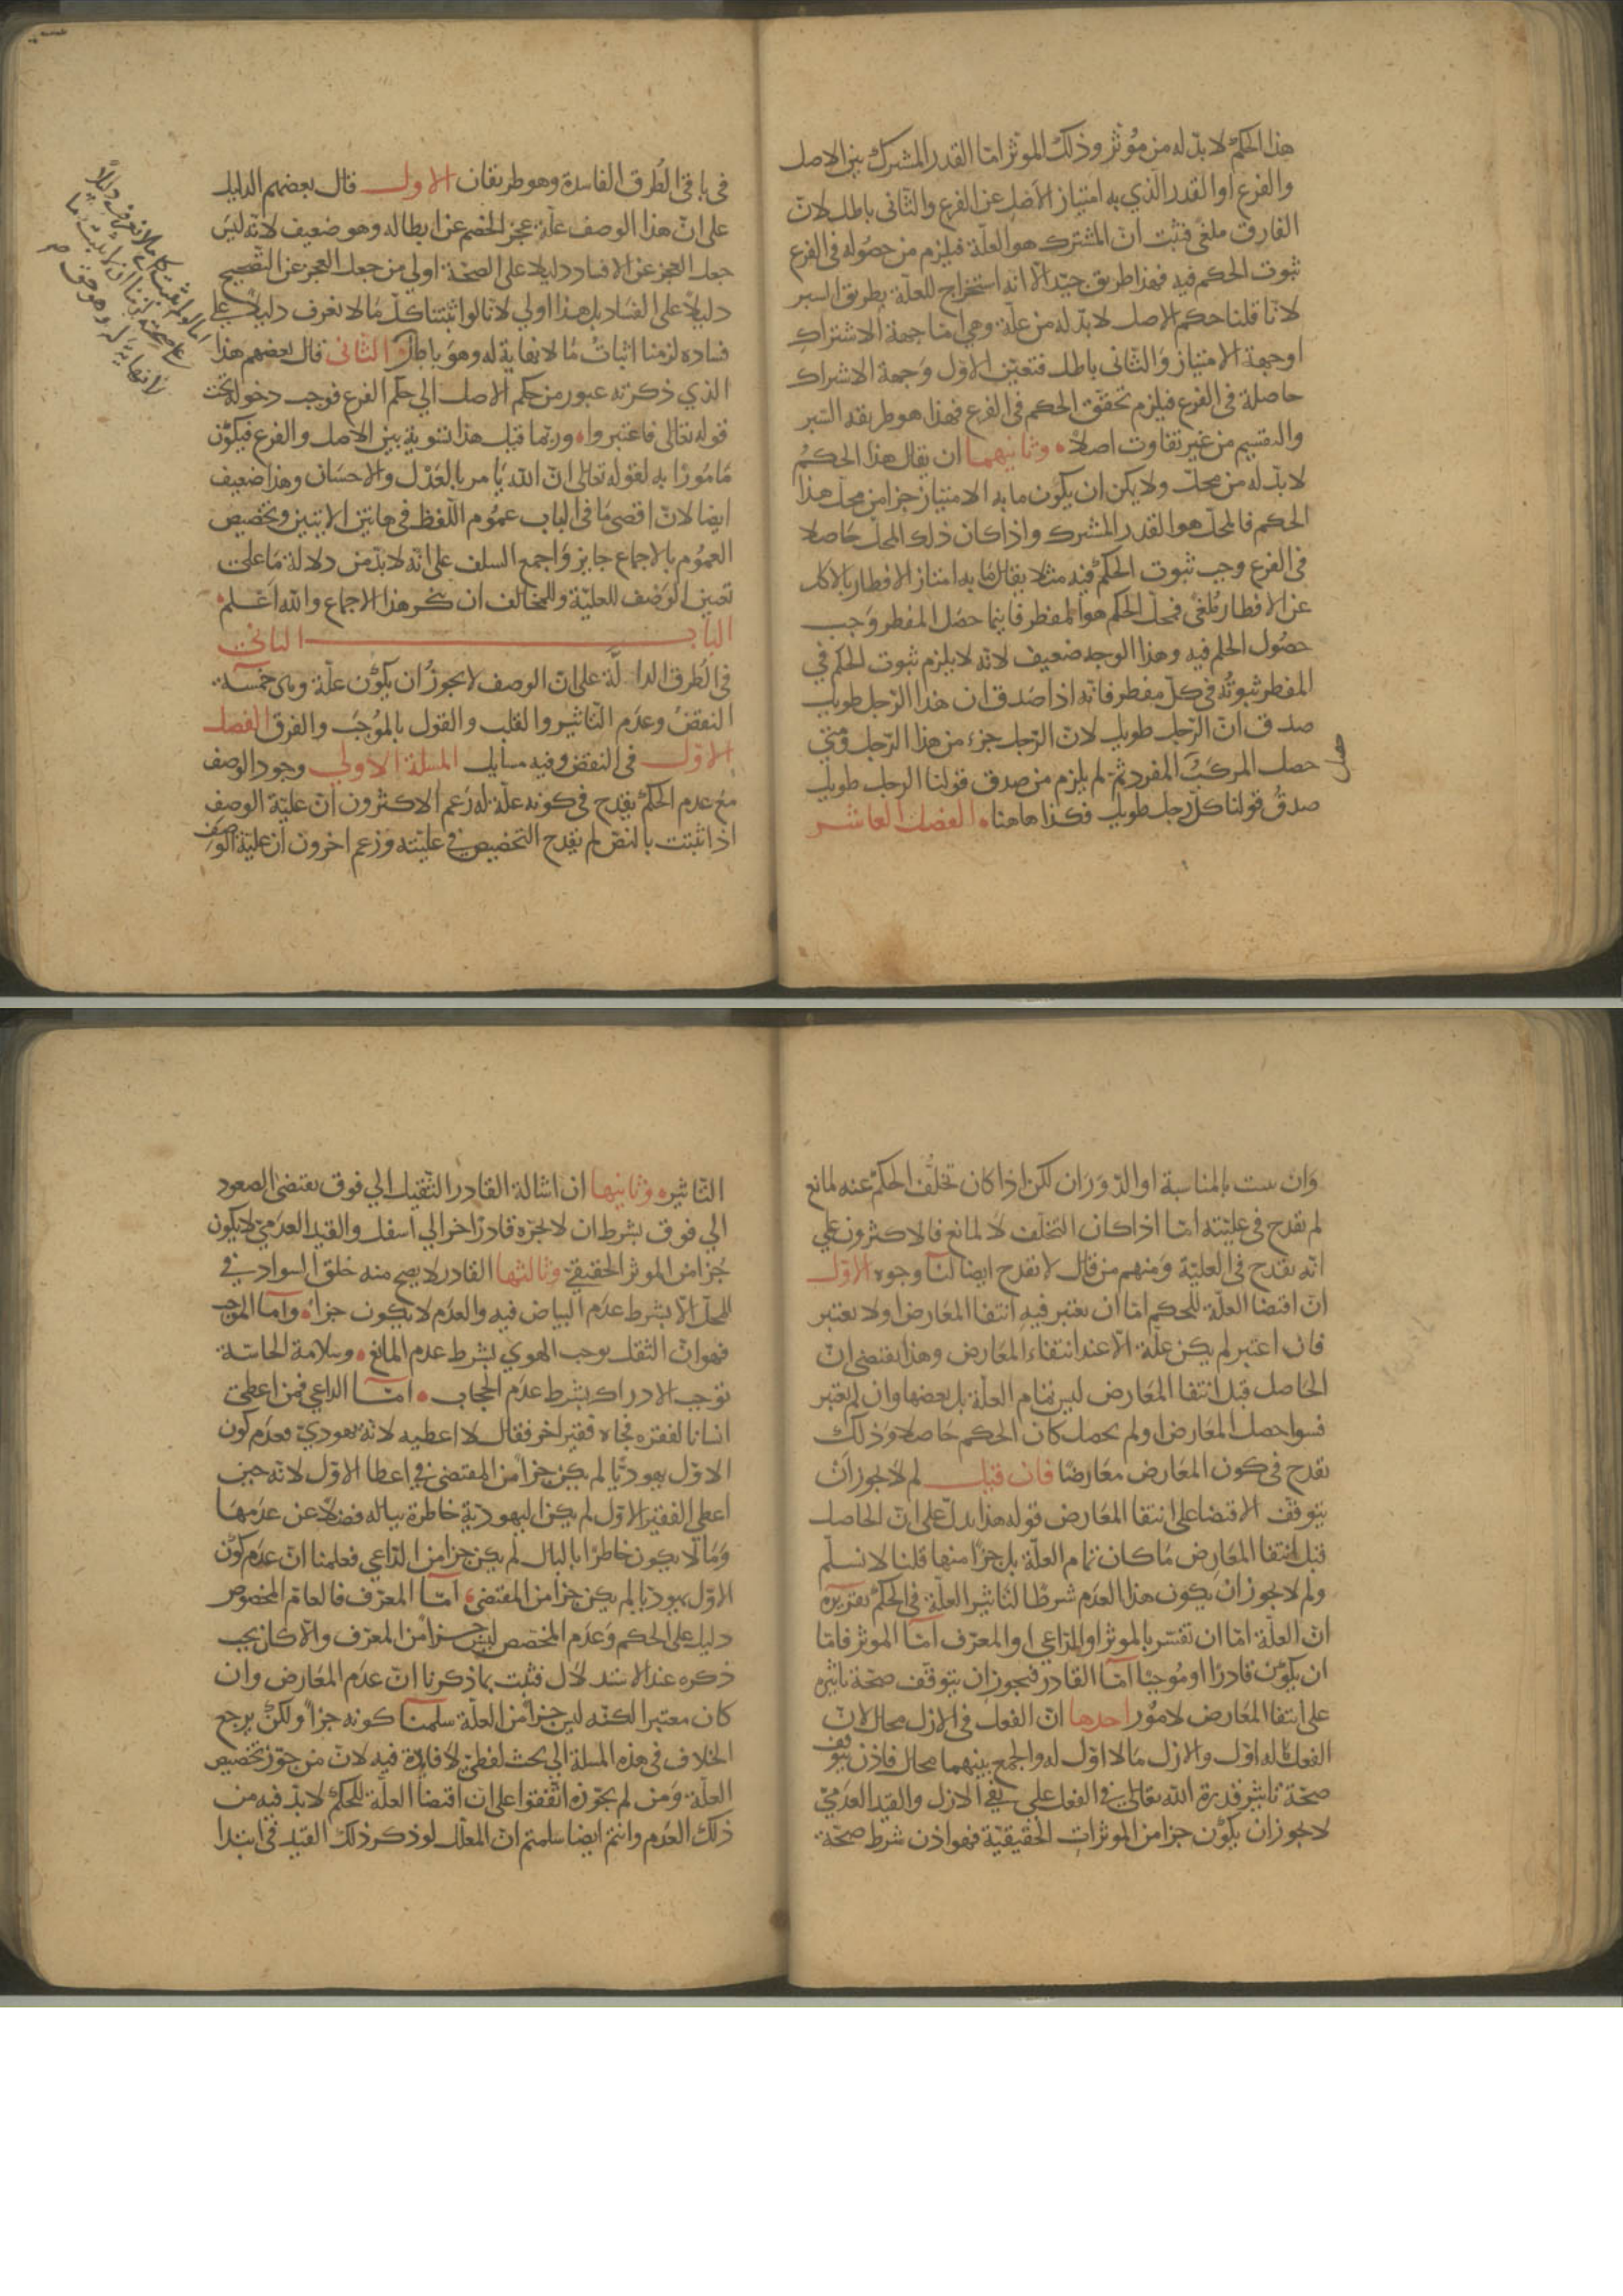 هذا الحكم لا بدّ له من مُوثر وذلك الموثر امّا القدر المشترك بين الاصل
والفرع او القدر الذي به امتياز الاصل عن الفرع والثانى باطل لانّ
الفارق ملغى فثبت انّ المشترك هو العلّة فيلزم من حصوله فى الفرع
ثبوت الحكم فيه فهذا طريق جيّد الّا انه استخراج للعلّة بطريق السبر
لانّا قلنا حكم الاصل لا بدّ له من علّة وهي امّا جهة الاشتراك
او جهة الامتياز والثّانى باطل فتعيّن الاوّل وجهة الاشراك
حاصلة فى الفرع فيلزم تحقّق الحكم فى الفرع فهذا هو طريقة السّبر
والتقسيم من غير تفاوت اصلاً وثانيهما ان يقال هذا الحكمُ
لا بدّ له من محلّ ولا يمكن ان يكون ما به الامتياز جزا من محلّ هذا
الحكم فالمحلّ هو القدر المشترك واذا كان ذلك المحلّ حاصلا
فى الفرع وجب ثبوت الحكم فيه مثلا يقال ما به امتاز الافطار بالاكل
عن الافطار مُلغى فمحلّ الحكم هو المفطر فاينما حصَل المفطر وَجب
حصُول الحكم فيه وهذا الوجه ضعيف لانّه لا يلزم ثبوت الحكم في
المفطر ثبوتُه فى كلّ مفطر فانّه اذا صَدق ان هذا الرّجل طويل
صدق انّ الرّجل طويل لانّ الرّجل جزء من هذا الرّجل ومتى
حصل المركبُ المفرد ثمّ لم يلزم من صدق قولنا الرجل طويل
حصل
صدقُ قولنا كلّ رجل طويل فكذا هاهنا الفصل العاشر
فى باقى الطُرق الفاسدة وهو طريقان الاول قال بعضهم الدليل
على انّ هذا الوصف علّة عجز الخصم عن ابطاله وهو ضعيف لانّه ليسَ
جعل العجز عن الافساد دليلا على الصحّة اولي من جعل العجز عن التّصحيح
دليلاً على الفساد بل هذا اولي لانّا لو اثبتنا كلّ مَا لا نعرف دليلاً على
فساده لزمنا اثباتُ مَا لا نهاية له وهو باطل الثانى قال بعضهم هذا
الذي ذكرته عبور من حكم الاصل الي حكم الفرع فوجب دخوله تحت
قوله تعالى فاعتبروا وربّما قيل هذا تسوية بين الاصل والفرع فيكون
مَامُورًا به لقوله تعالى انّ الله يَامر بالعَدْل والاحسَان وهذا ضعيف
ايضا لانّ اقصى مَا فى الباب عمُوم اللّفظ فى هاتين الايتين وتخصيص
العمُوم بالاجماع جايز وَاجمع السلف على انّه لا بدّ من دلالة مَا على
تعيين الوَصف للعليّة وللمخالف ان ينكر هذا الاجماع والله اعَلم
امّا لو اثبتنا كل ما لا نعرف دليلاً
على صحته لزمنا اثبات ما
لا نهاية له وهو حق صح
الباب الثانى
فى الطُرق الدالّة على انّ الوصف لا يجوزُ ان يكون علّة وهى خمسة
النقضُ وعدَم التّاثير والقلب والقول بالمُوجَب والفرق الفصل
الاوّل فى النقض وفيه مسايل المسلة الاولي وجود الوصف
مَع عدم الحكم يقدح فى كونه علّة له زعم الاكثرون انّ عليّة الوصف
اذا ثبتت بالنصّ لم يقدح التخصيص في عليّته وزعم اخرون ان علية الوصف
وان ثبت بالمناسبة او الدّوَرَان لكن اذا كان تخلّف الحكم عنه لمانع
لم يقدح فى عليّته امّا اذا كان التخلّف لا لمانع فالاكثرون على
انّه يقدح فى العليّة وَمنهم من قال لا يقدح ايضا لنا وجوه الاوّل
انّ اقتضا العلّة للحكم امّا ان يعتبر فيه انتفا المعَارض او لا يعتبر
فان اعتبر لم يكن علّة الّا عند انتفاء المعَارض وهذا يقتضى انّ
الحَاصل قبل انتفا المعَارض ليس تمام العلّة بل بعضها وان لم يعتبر
فسوا حصل المعَارض او لم يحصل كان الحكم حَاصلا وَذلك
يقدح فى كون المعَارض معَارضًا فان قيل لم لا يجوز انْ
يتوقّف الاقتضا على انتفا المعَارض قوله هذا يدلّ على انّ الحاصل
قبل انتفا المعَارِض مَا كان تمام العلّة بل جزاً منها قلنا لا نسلّم
ولم لا يجوز ان يكون هذا العدَم شرطًا لتاثير العلّة فى الحكم تقريره
انّ العلّة امّا ان تفسّر بالموثر او الدّاعي او المعرّف امّا الموثر فامّا
ان يكون قادرًا او مُوجبًا امّا القادر فيجوز ان يتوقّف صحّة تاثيره
على انتفا المعَارض لامُور احدها انّ الفعل فى الازل محال لانّ
الفعل ما له اوّل والازل مَا لا اوّل له والجمع بينهما محال فاذن يتوقف
صحّة تاثير قدرة الله تعالى في الفعل على نفي الازل والقيد العدَميّ
لا يجوز ان يكون جزا من الموثرات الحقيقيّة فهو اذن شرط صحّة
التّاثير وثانيها ان اشالة القادر الثّقيل الي فوق يقتضى الصعود
الي فوق بشرط ان لا يجرّه قادرٌ اخر الي اسفل والقيد العدَميّ لا يكون
جُزا من الموثر الحقيقيّ وثالثها القادر لا يصح منه خلق السواد في
المحلّ الّا بشرط عدَم البياض فيه والعدَم لا يكون جزاً وامّا الموجب
فهو انّ الثقل يوجب الهوي بشرط عدم المانع وسلامة الحاسّة
توجب الادراك بشرط عدَم الحجاب امّا الداعي فمن اعطى
انسانا لفقره فجاه فقير اخر فقال لا اعطيه لانّه يهوديّ فعدَم كون
الاوّل يهوديًّا لم يكن جزاً من المقتضى في اعطا الاوّل لانّه حين
اعطى الفقير الاوّل لم يكن اليهوديّة خاطرة بباله فضلاً عن عدَمهَا
وَمَا لا يكون خاطرًا بالبال لم يكن جزا من الدّاعي فعلمنا انّ عدَم كون
الاوّل يهوديا لم يكن جزا من المقتضى امّا المعرّف فالعامّ المخصُوص
دليل على الحكم وَعدَم المخصّص ليسَ جزاً من المعرّف والّا كان يجب
ذكره عند الاستدلال فثبت بما ذكرنا انّ عدَم المعَارض وان
كان معتبرا لكنّه ليس جزاً من العلّة سلّمنا كونه جزاً ولكن يرجع
الخلاف فى هذه المسلة الي بحث لفظيّ لا فايدة فيه لانّ من جوّز تخصيص
العلّة وَمن لم يجوّزه اتّفقوا على انّ اقتضا العلّة للحكم لا بدّ فيه من
ذلك العدَم وانتم ايضا سلمتم انّ المعلّل لو ذكر ذلك القيد فى ابتدا